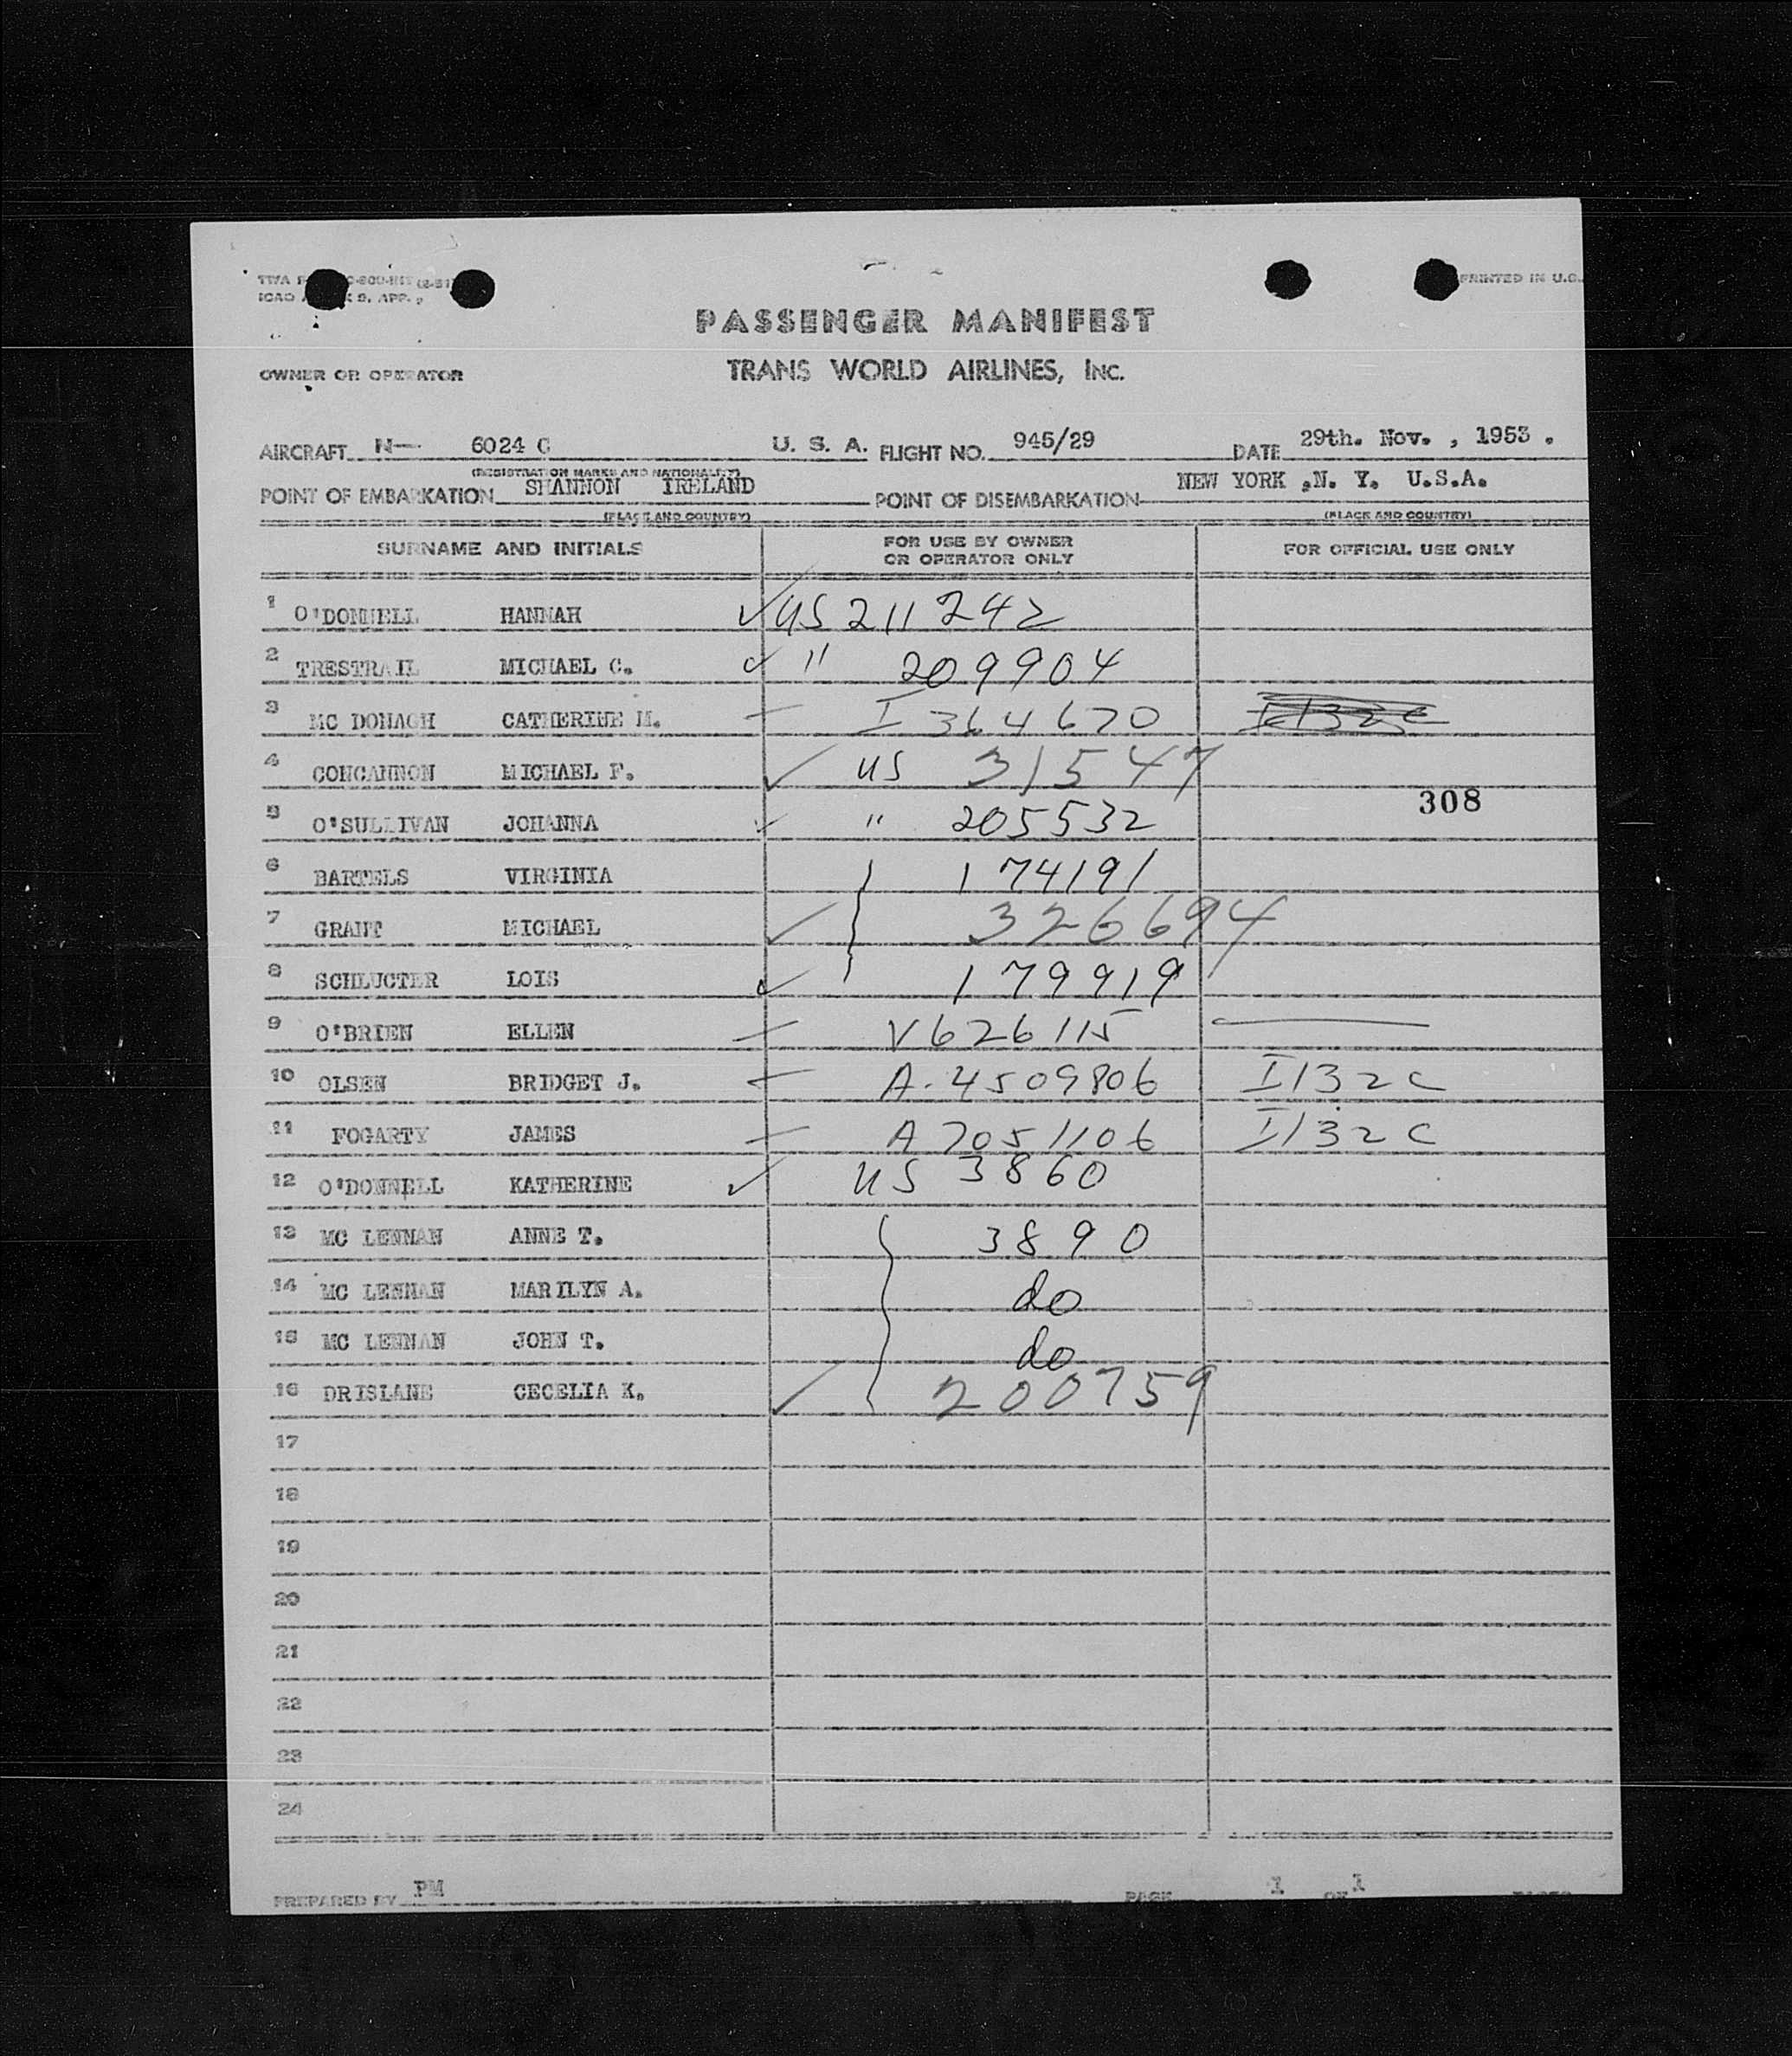 PRINTED IN U.S.
ICAO
9. APP.
PASSENGER MANIFEST
OWNER OR OPERATOR TRANS WORLD AIRLINES, INC.
AIRCRAFT N— 6024 C U. S. A. FLIGHT NO. 945/29 DATE 29th. Nov. , 1953 .
(REGISTRATION MARKS AND NATIONALITY)
POINT OF EMBARKATION SHANNON IRELAND POINT OF DISEMBARKATION NEW YORK ,N. Y. U.S.A.
(PLACE AND COUNTRY) (PLACE AND COUNTRY)
SURNAME AND INITIALS FOR USE BY OWNER OR OPERATOR ONLY FOR OFFICIAL USE ONLY
1 O'DONNELL HANNAH ✓ US 211242
2 TRESTRAIL MICHAEL C. ✓ " 209904
3 MC DONAGH CATHERINE M. — I 364670 I132C
4 CONCANNON MICHAEL F. ✓ US 31547
308
5 O'SULLIVAN JOHANNA ✓ " 205532
6 BARTELS VIRGINIA 174191
7 GRANT MICHAEL ✓ 326694
8 SCHLUCTER LOIS ✓ 179919
9 O'BRIEN ELLEN — V626115 —
10 OLSEN BRIDGET J. — A-4509806 I132C
11 FOGARTY JAMES — A7051106 I132C
12 O'DONNELL KATHERINE ✓ US 3860
13 MC LENNAN ANNE T. 3890
14 MC LENNAN MARILYN A. do
15 MC LENNAN JOHN T. do
16 DRISLANE CECELIA K. ✓ 200759
17
18
19
20
21
22
23
24
PREPARED BY PM PAGE 1 OF 1